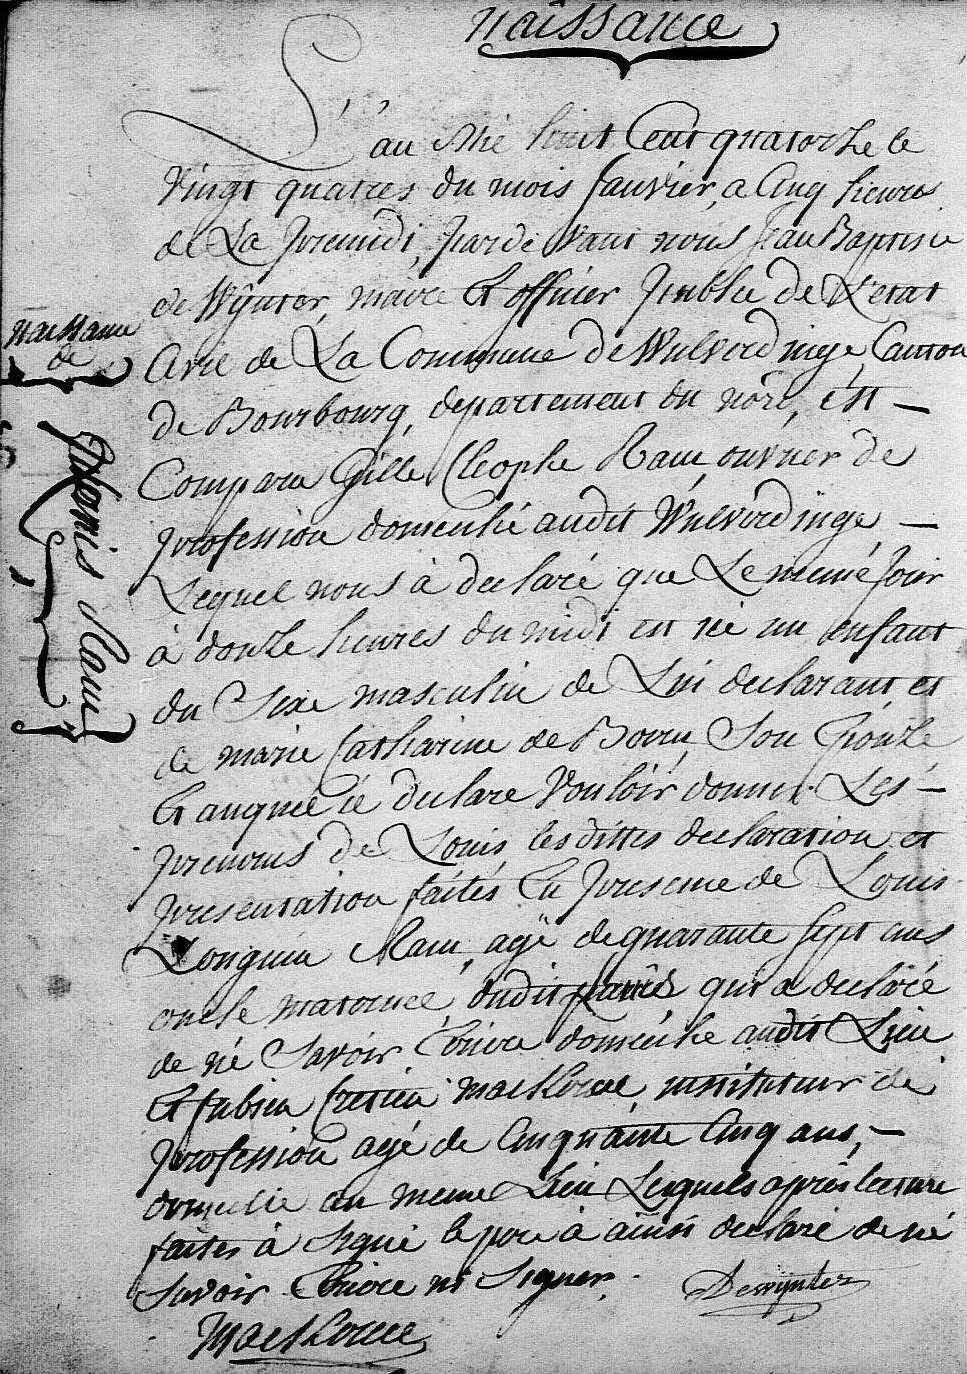 Naissance
L'an Mie huit Cent quatorze le
Vingt quatres du mois Janvier, a Cinq heures
de La Jremidi, pardevant nous Jean Baptiste
de Wÿnter, maire Et officier Publie de L'etat
Civie de La Commune de Wulverdinge, Canton
de Bourbourg, departement du nord, est —
Comparu Gille Cleophe Ram, ouvrier de
profession domicilié audit Wulverdinge, —
Lequel nous à declaré que Le meme Jour
à douze heures du midi est né un enfant
du Sexe masculin de Lui declarant et
de marie Catharine de Som Epouze
Et auquel il declare Vouloir donner Les —
prenoms de Louis, lesdittes declaration et
presentation faites En presence de Louis
Longuin Ram, agé de quarante Sept ans
oncle maternel, dudit qui a declaré
de né Savoir Ecrire domicilie audit Lieu
Et fabien instituteur de
profession agé de Cinquante Cinq ans, —
domicilie au meme Lieu Lesquels apres lecture
faites à Signé le pere à ainsi declaré de né
Savoir Ecrire ni Signer.
Dewÿnter
naissance
de
Louis Ram